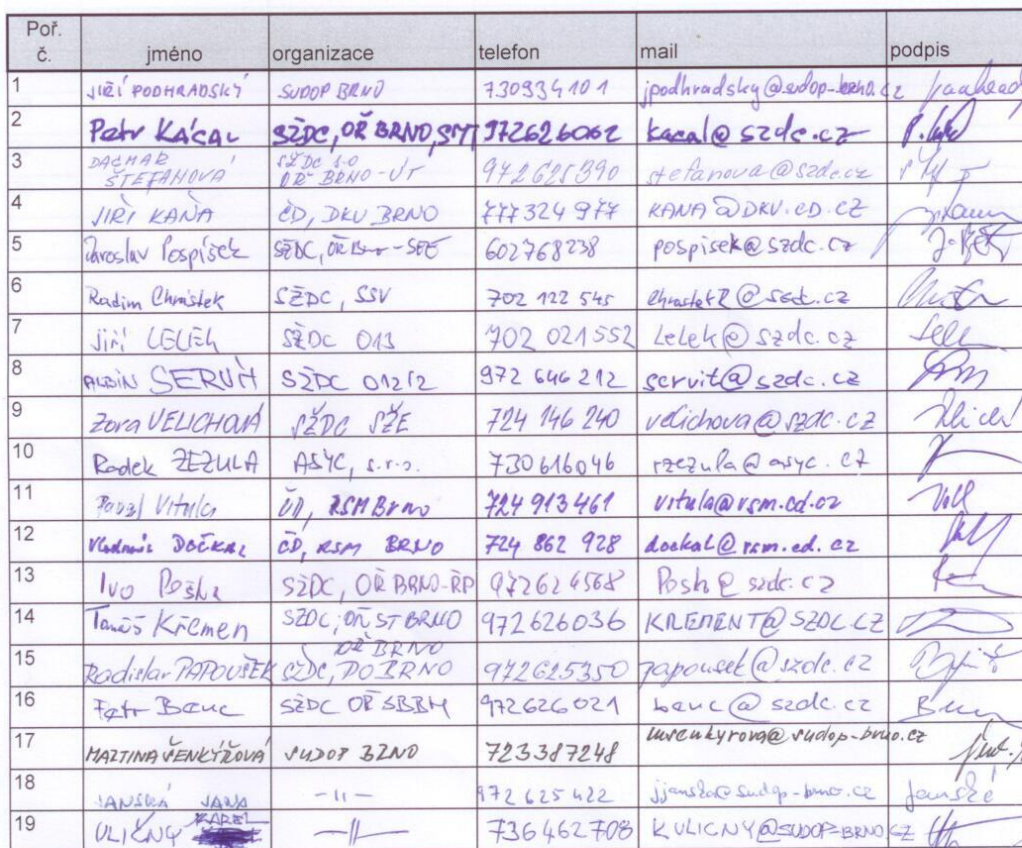 Poř. č. jméno organizace telefon mail podpis
1 JIŘÍ PODHRADSKÝ SUDOP BRNO 730934101 jpodhradsky@sudop-brno.cz
2 Petr KÁCAL SŽDC, OŘ BRNO, SMT 972626062 kacal@szdc.cz
3 DAGMAR ŠTEFANOVÁ SŽDC s.o OŘ BRNO-ÚT 972625390 stefanova@szdc.cz
4 JIŘÍ KAŇA ČD, DKV BRNO 777324977 KANA@DKV.CD.CZ
5 Jaroslav Pospíšek SŽDC, OŘ Brno-SEE 602768238 pospisek@szdc.cz
6 Radim Chrástek SŽDC, SSV 702 122 545 @szdc.cz
7 Jiří LELEK SŽDC O13 702 021552 Lelek@szdc.cz
8 ALBIN SERVÍT SŽDC O12/2 972 646 212 servit@szdc.cz
9 Zora VELICHOVÁ SŽDC SŽE 724 146 240 velichova@szdc.cz
10 Radek ZEZULA ASYC, s.r.o. 730616046 rzezula@asyc.cz
11 Pavel Vitula ČD, RSM Brno 724 913 461 vitula@rsm.cd.cz
12 Vladimír DOČKAL ČD, RSM BRNO 724 862 928 dockal@rsm.cd.cz
13 Ivo SŽDC, OŘ BRNO-ŘP 972624568 @szdc.cz
14 Tomáš Křemen SŽDC, OŘ ST BRNO 972626036 KREMENT@SZDC.CZ
15 Radislav PAPOUŠEK SŽDC, OŘ BRNO PO BRNO 972625350 papousek@szdc.cz
16 Petr Banc SŽDC OŘ SBBH 972626021 banc@szdc.cz
17 MARTINA ŠENKÝŘOVÁ SUDOP BRNO 723387248 msenkyrova@sudop-brno.cz
18 JANSKÁ JANA -11- 972 625 422 jjanska@sudop-brno.cz Janské
19 ULIČNÝ KAREL -11- 736462708 KULICNY@SUDOP-BRNO.CZ